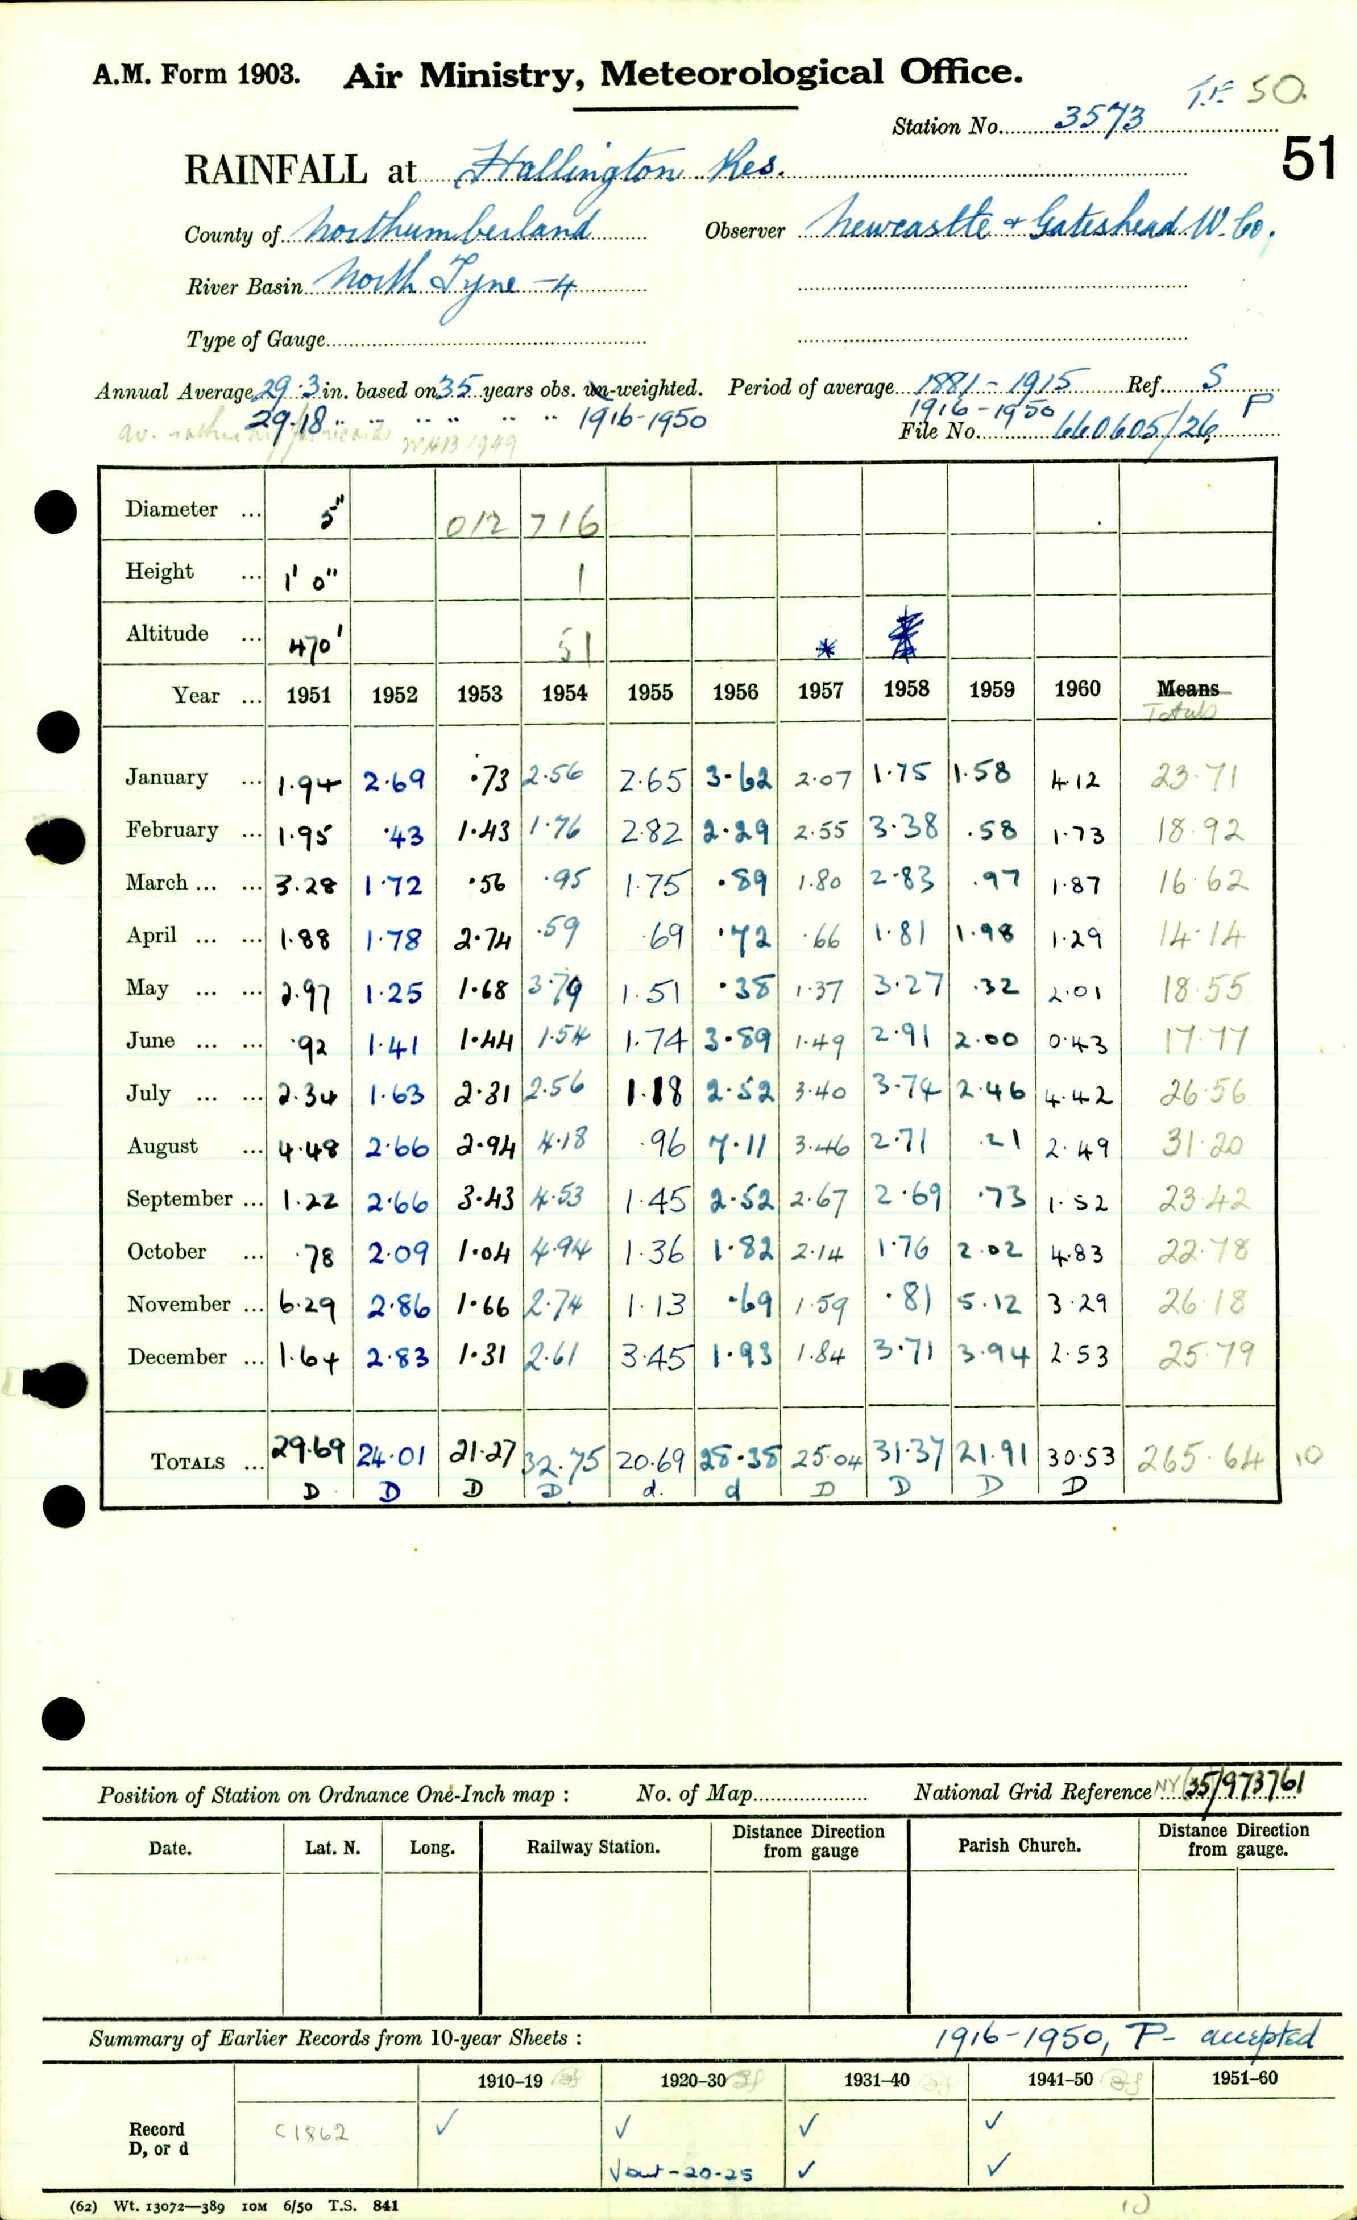 A.M. Form 1903. Air Ministry, Meteorological Office.
T.F. 50.
Station No. 3573
51
RAINFALL at Hallington Res.
County of Northumberland Observer Newcastle + Gateshead W. Co.
River Basin North Tyne - 4
Type of Gauge
Annual Average 29.3 in. based on 35 years obs. un-weighted. Period of average 1881-1915 Ref. S
29.18 " " " " " " 1916-1950 1916-1950 P
av. rather 1949
File No. 660605/26
Diameter ... 5" 012 716
Height ... 1' 0" 1
Altitude ... 470' 51 * *
Year ... 1951 1952 1953 1954 1955 1956 1957 1958 1959 1960 Means
Totals
January ... 1.94 2.69 .73 2.56 2.65 3.62 2.07 1.75 1.58 4.12 23.71
February ... 1.95 .43 1.43 1.76 2.82 2.29 2.55 3.38 .58 1.73 18.92
March ... ... 3.28 1.72 .56 .95 1.75 .89 1.80 2.83 .97 1.87 16.62
April ... ... 1.88 1.78 2.74 .59 .69 .72 .66 1.81 1.98 1.29 14.14
May ... ... 2.97 1.25 1.68 3.79 1.51 .38 1.37 3.27 .32 2.01 18.55
June ... ... .92 1.41 1.44 1.54 1.74 3.89 1.49 2.91 2.00 0.43 17.77
July ... ... 2.34 1.63 2.31 2.56 1.18 2.52 3.40 3.74 2.46 4.42 26.56
August ... 4.48 2.66 2.94 4.18 .96 7.11 3.46 2.71 .21 2.49 31.20
September ... 1.22 2.66 3.43 4.53 1.45 2.52 2.67 2.69 .73 1.52 23.42
October ... .78 2.09 1.04 4.94 1.36 1.82 2.14 1.76 2.02 4.83 22.78
November ... 6.29 2.86 1.66 2.74 1.13 .69 1.59 .81 5.12 3.29 26.18
December ... 1.64 2.83 1.31 2.61 3.45 1.93 1.84 3.71 3.94 2.53 25.79
TOTALS ... 29.69 24.01 21.27 32.75 20.69 28.38 25.04 31.37 21.91 30.53 265.64 10
D D D D. d. d D D D D
Position of Station on Ordnance One-Inch map : No. of Map National Grid Reference NY (35)/973761
Date. Lat. N. Long. Railway Station. Distance from gauge Direction Parish Church. Distance from gauge. Direction
Summary of Earlier Records from 10-year Sheets : 1916-1950, P- accepted
1910-19 1920-30 1931-40 1941-50 1951-60
Record c1862 ✓ ✓ ✓ ✓
D, or d √ out-20-25 ✓ ✓
(62) Wt. 13072—389 10M 6/50 T.S. 841
10